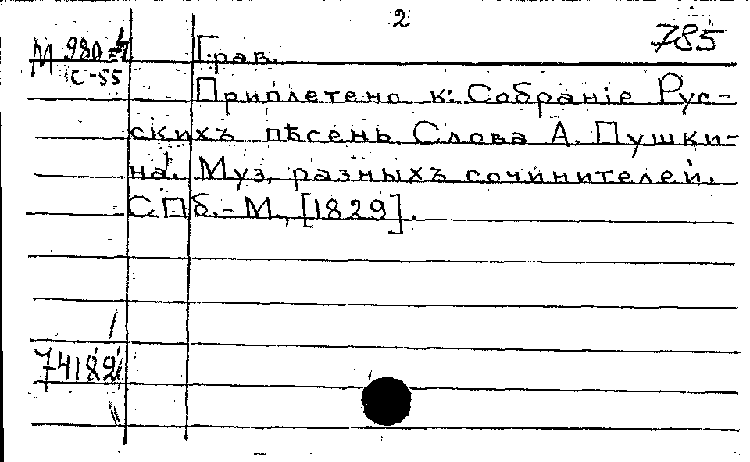 2
785
М 980-4
С-55
Грав.
Приплетено к: Собраніе Рус-
скихъ пѣсень. Слова А. Пушки-
на. Муз. разныхъ сочинителей.
С.Пб.-М., [1829].
74182